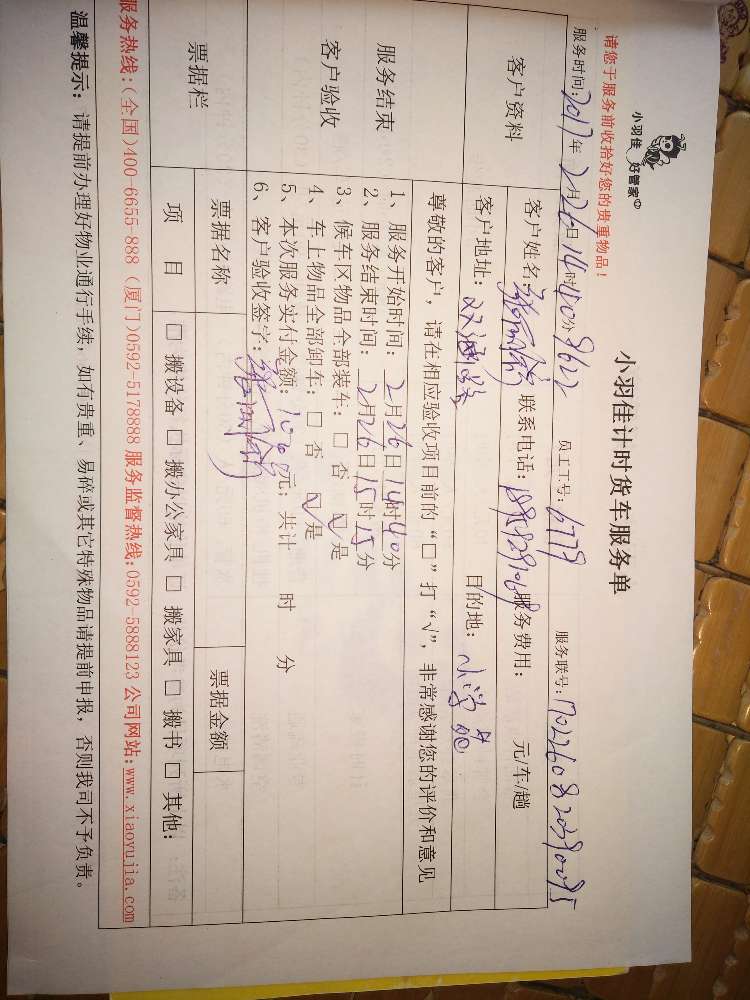 小羽佳 好管家
小羽佳计时货车服务单
请您于服务前收拾好您的贵重物品！
服务时间：2017年2月26日14时40分 9622 员工工号：6779 服务联号：
客户资料
客户姓名： 联系电话： 服务费用： 元/车/趟
客户地址： 目的地：
尊敬的客户，请在相应验收项目前的“□”打“√”，非常感谢您的评价和意见
服务结束
客户验收
1、服务开始时间：2月26日14时40分
2、服务结束时间：2月26日15时15分
3、候车区物品全部装车：□ 否 ☑ 是
4、车上物品全部卸车：□ 否 ☑ 是
5、本次服务实付金额： 元；共计 时 分
6、客户验收签字：
票据栏
票据名称 票据金额
项 目 □ 搬设备 □ 搬办公家具 □ 搬家具 □ 搬书 □ 其他：
服务热线：(全国)400-6655-888 (厦门)0592-5178888 服务监督热线:0592-5888123 公司网站:www.xiaoyujia.com
温馨提示：请提前办理好物业通行手续，如有贵重、易碎或其它特殊物品请提前申报，否则我司不予负责。